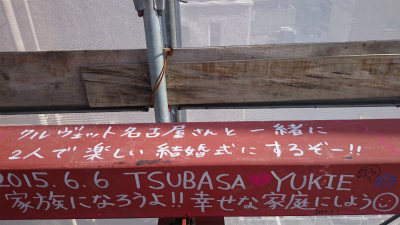 クルヴェット名古屋さんと一緒に
2人で楽しい結婚式にするぞー!!
2015.6.6 TSUBASA ♥ YUKIE
家族になろうよ!!幸せな家庭にしよう☺